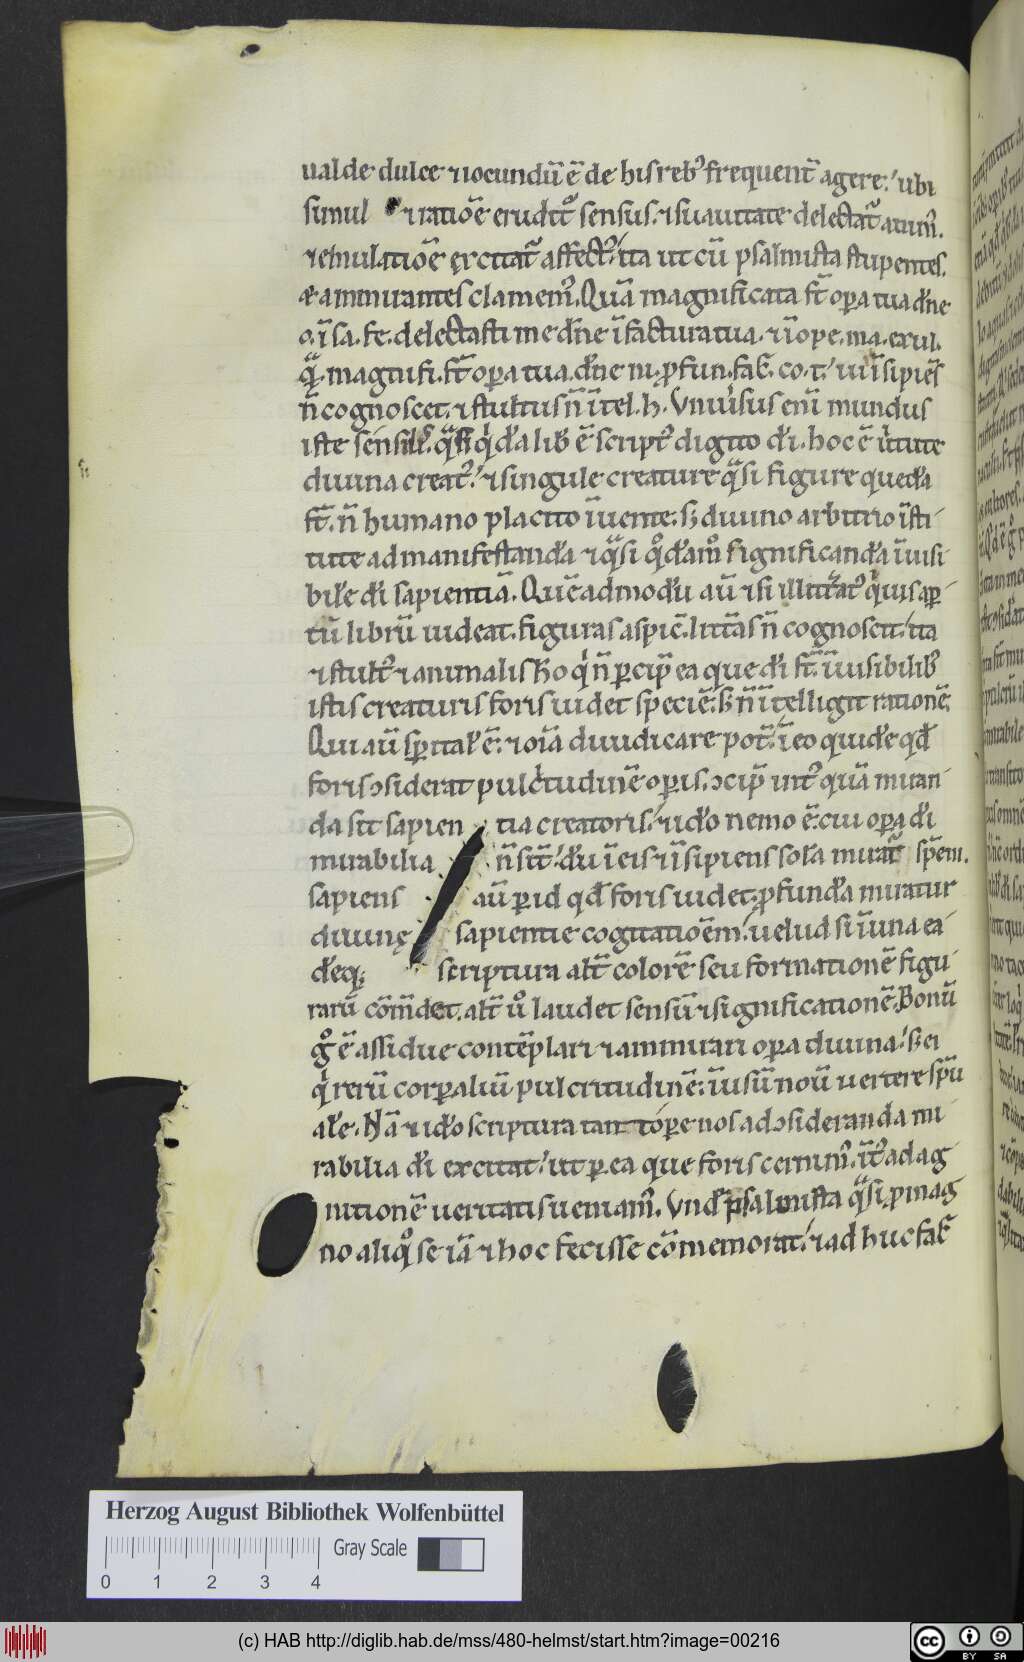 ualde dulce ⁊ iocundū ē de his reb᷒ frequent̄ agere. ubi
simul ⁊ ratiōe erudit᷒ sensus. ⁊ suauitate delectat᷑ anim᷒.
⁊ emulatiōe excitat᷑ affect᷒. ita ut cū psalmista stupentes.
⁊ ammirantes clamem᷒. Quā magnificata s̄t oꝑa tua dn̄e
o. ī sa. fe. delectasti me dn̄e ī factura tua. ⁊ ī ope. ma. exul.
magnifi. s̄t oꝑa tua. dn̄e ni. ꝓfun. fac̄. co. t. uir īsipiēs
n̄ cognoscet. ⁊ stultus n̄ ītel. h. Vniu̓sus enī mundus
iste sensilis. q̊si qͥdā lib̓ ē script᷒ digito dī. hoc ē uͥtute
diuina creat᷒. ⁊ singule creature q̊si figure quedā
s̄t. n̄ humano placito īuente. sꝫ diuino arbitrio īsti
tute ad manifestandā ⁊ q̊si qͦdāmͦ significandā īuisi
bilē dī sapientiā. Quēadmodū aū ⁊ si illitterat᷒ quis aꝑ
tū librū uideat. figuras aspic̄. litt̄as n̄ cognoscit. ita
⁊ stult᷒ ⁊ animalis hō qͥ n̄ ꝑcip̄ ea que dī s̄t. ī uisibilib᷒
istis creaturis foris uidet speciē. sꝫ n̄ ītelligit rationē.
Qui aū sp̄italˀ ē. ⁊ oīa diiudicare pot̄. ī eo quidē qd̄
foris ↄsiderat pulcͥtudinē oꝑis. ↄcip̄ int᷒ quā miran
da sit sapien tia creatoris. ⁊ idō nemo ē. cui oꝑa dī
mirabilia n̄ sīt. dū ī eis ⁊ īsipiens solā mirat᷑ spēm.
sapiens aū ꝑ id qd̄ foris uidet. ꝓfundā miratur
diuinę sapientie cogitatiōem. uelud si ī una ea
dēq; scriptura alt̄ colorē seu formationē figu
rarū cōm̄det. alt̄ uͦ laudet sensū ⁊ significationē. Bonū
gͦ ē assidue contēplari ⁊ ammirari oꝑa diuina. sꝫ ei
qͥ rerū corꝑaliū pulcritudinē. ī usū nouͥ uertere spū
alē. Nā ⁊ idō scriptura tantoꝑe nos ad ↄsideranda mi
rabilia dī excitat. ut ꝑ ea que foris cernim᷒. īt᷒ ad ag
nitionē ueritatis ueniam᷒. Vnd̄ psalmista q̊si ꝓ mag
no aliqͦ se iā ⁊ hoc fecisse cōmemorat. ⁊ ad huc fac̄
Herzog August Bibliothek Wolfenbüttel
Gray Scale
0 1 2 3 4
(c) HAB http://diglib.hab.de/mss/480-helmst/start.htm?image=00216
cc BY SA